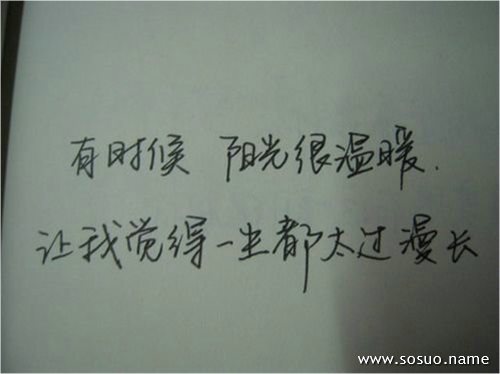 有时候 阳光很温暖.
让我觉得一生都太过漫长
www.sosuo.name